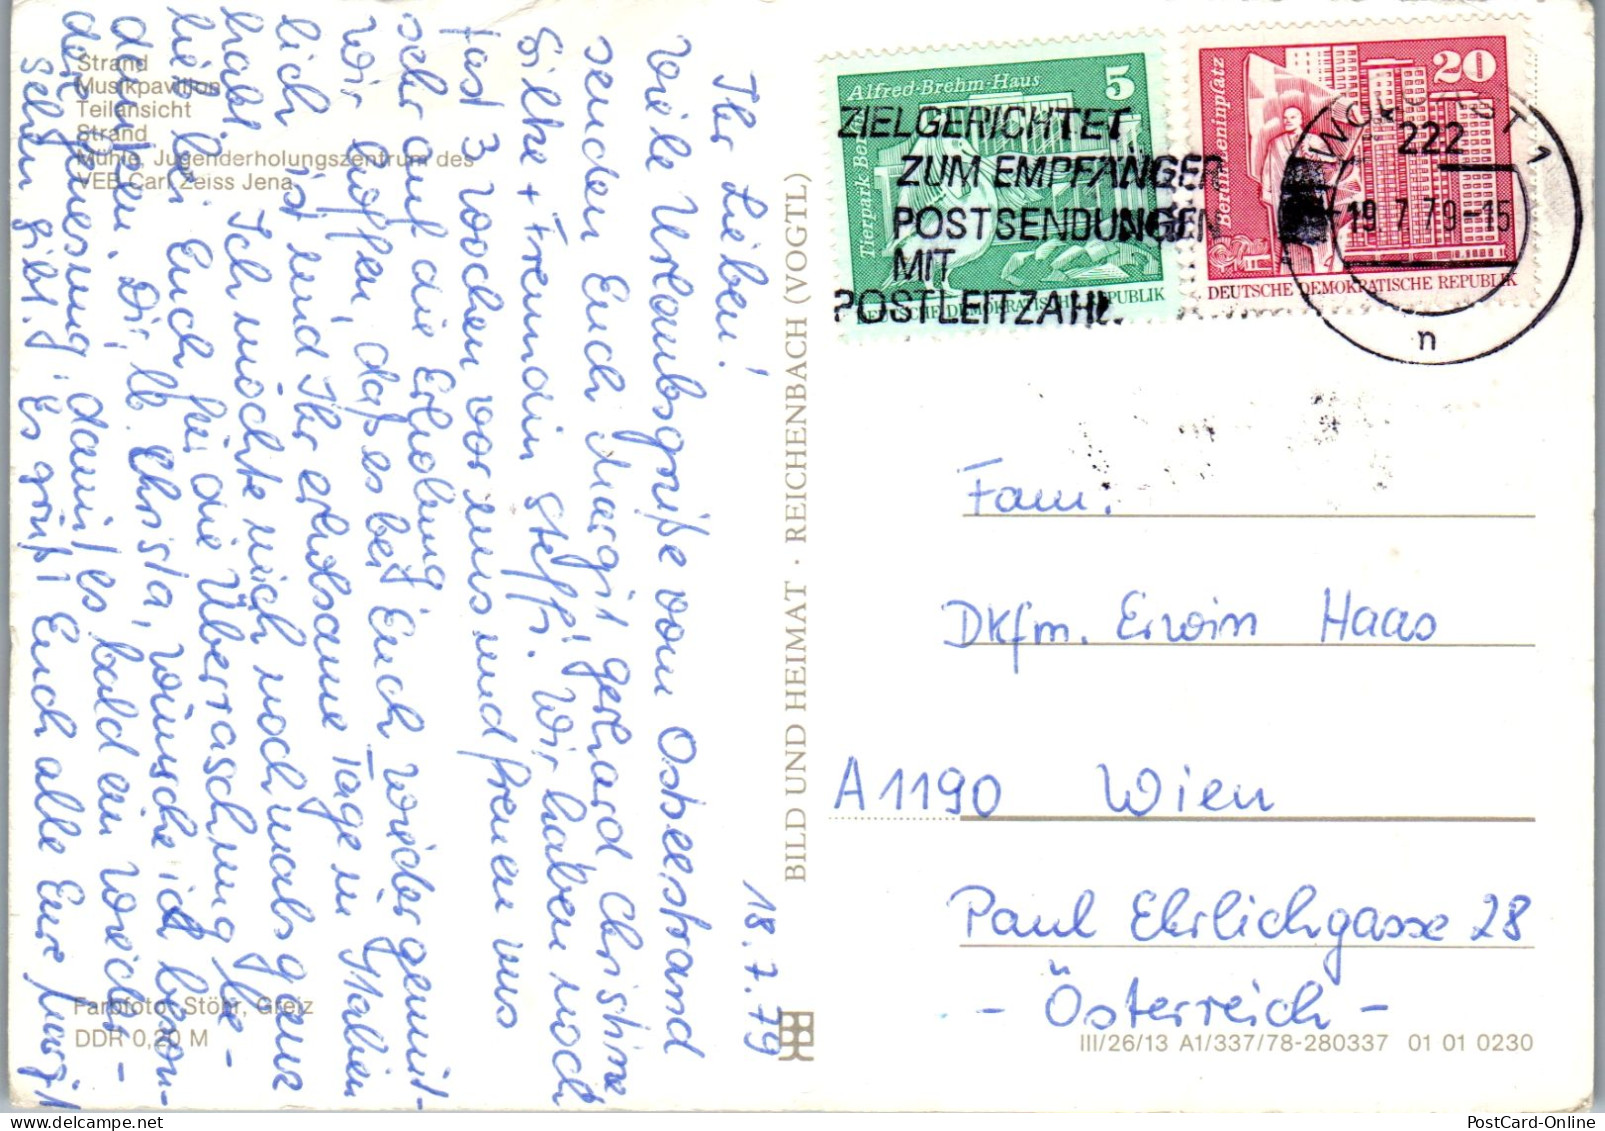 Strand
Musikpavillon
Teilansicht
Strand
Mühle, Jugenderholungszentrum des
VEB Carl Zeiss Jena
18.7.79
Ihr Lieben!
Viele Urlaubsgrüße vom Ostseestrand
senden Euch Margit, Gerhard, Christine
Silke + Freundin Steffi. Wir haben noch
fast 3 Wochen vor uns und freuen uns
sehr auf die Erholung.
Wir hoffen, daß es bei Euch wieder gemüt-
lich ist und Ihr erholsame Tage in Italien
habt. Ich möchte mich nochmals ganz
lieb bei Euch für die Überraschung be-
danken. Dir, lb. Christa, wünsche ich
Genesung, damit es bald ein Wieder-
sehen gibt. Es grüßt Euch alle Eure Margit
Farbfoto: Stöhr, Greiz
DDR 0,20 M
BILD UND HEIMAT · REICHENBACH (VOGTL)
Alfred-Brehm-Haus 5
Tierpark Berlin
DEUTSCHE DEMOKRATISCHE REPUBLIK
20
Berlin-Leninplatz
DEUTSCHE DEMOKRATISCHE REPUBLIK
ZIELGERICHTET
ZUM EMPFÄNGER
POSTSENDUNGEN
MIT
POSTLEITZAHL
WOLGAST 1
222
19.7.79-15
n
Fam.
Dkfm. Erwin Haas
A 1190 Wien
Paul Ehrlichgasse 28
- Österreich -
III/26/13 A1/337/78-280337 01 01 0230
PostCard-Online